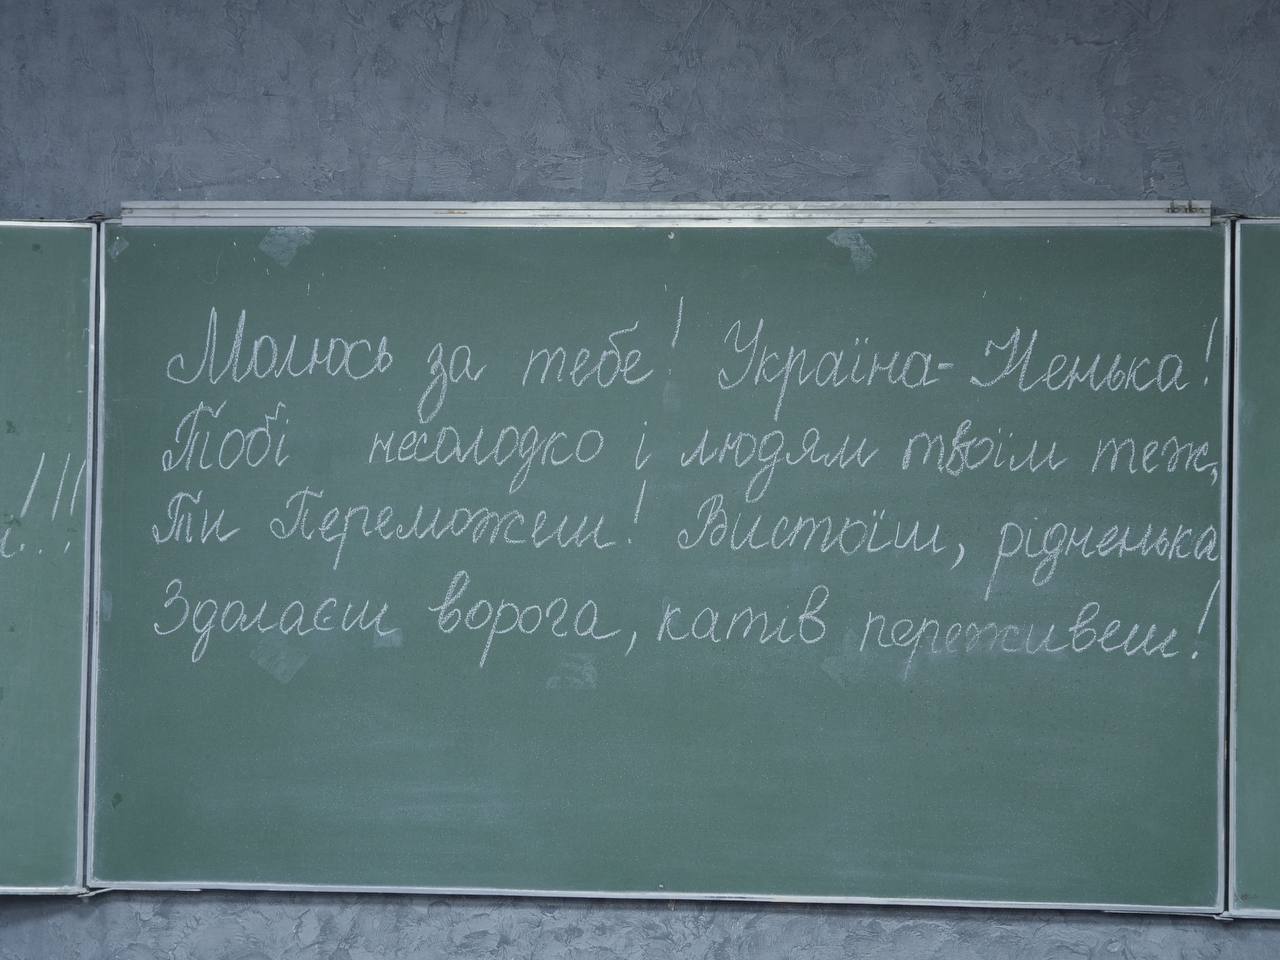 Молюсь за тебе! Україна-Ненька!
Тобі несолодко і людям твоїм теж,
Ти Переможеш! Вистоїш, рідненька!
Здолаєш ворога, катів переживеш!